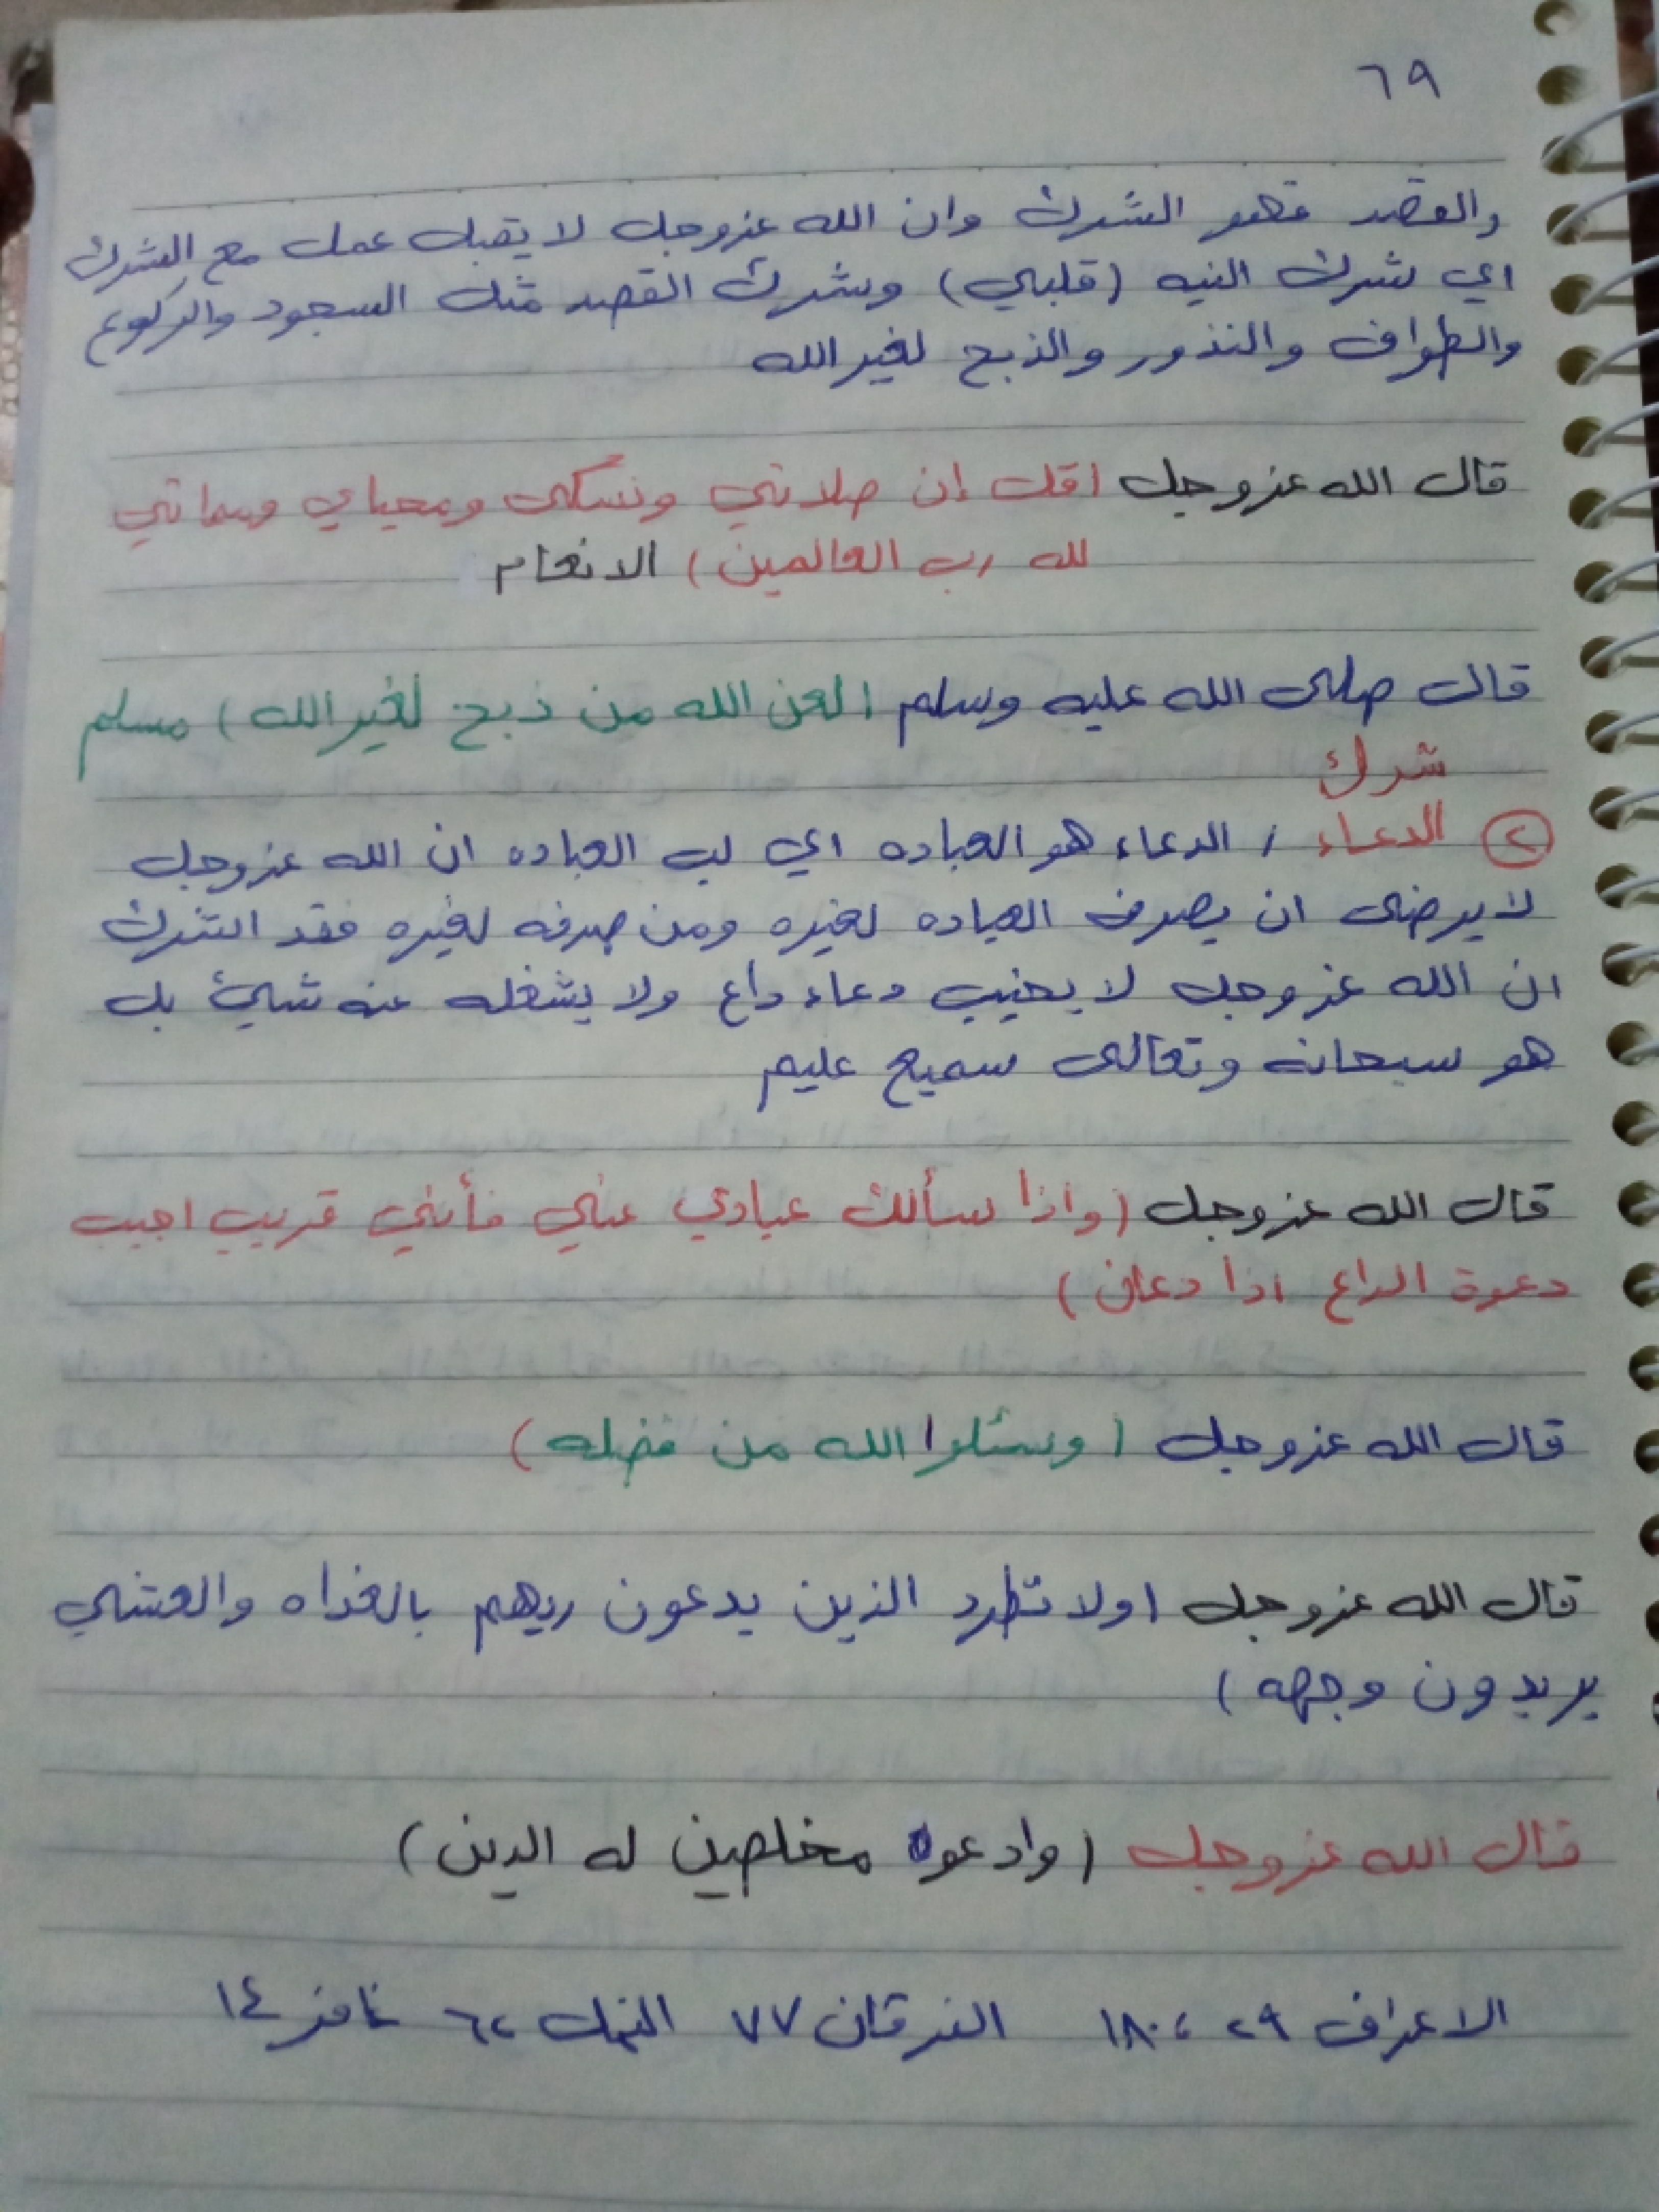 ٦٩
والقصد فهو الشرك وان الله عزوجل لا يقبل عمل مع الشرك
اي شرك النيه (قلبي) وشرك القصد مثل السجود والركوع
والطواف والنذور والذبح لغير الله
قال الله عزوجل (قل إن صلاتي ونسكي ومحياي ومماتي
لله رب العالمين) الانعام
قال صلى الله عليه وسلم (لعن الله من ذبح لغير الله) مسلم
شرك
٢ الدعاء / الدعاء هو العباده اي لب العباده ان الله عزوجل
لا يرضى ان يصرف العباده لغيره ومن صرفه لغيره فقد اشرك
ان الله عزوجل لا يخيب دعاء داع ولا يشغله عنه شيئ بل
هو سبحانه وتعالى سميع عليم
قال الله عزوجل (واذا سألك عبادي عني فأني قريب اجيب
دعوة الداع اذا دعان)
قال الله عزوجل (وسئلوا الله من فضله)
قال الله عزوجل (ولا تطرد الذين يدعون ربهم بالغداه والعشي
يريدون وجهه)
قال الله عزوجل (وادعوه مخلصين له الدين)
الاعراف ٢٩ ، ١٨٠ الفرقان ٧٧ النمل ٦٢ غافر ١٤